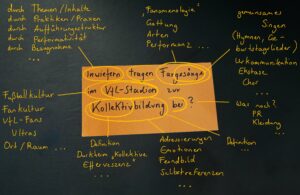 durch Themen / Inhalte
durch Praktiken / Praxen
durch Aufführungsstruktur
durch Performativität
durch Bezugnahme
...
"Fanomenologie"
Gattung
Arten
Performanz
...
gemeinsames
Singen
(Hymnen, Ge-
burtstagslieder)
Urkommunikation
Ekstase
Chor
...
Inwiefern tragen Fangesänge
im VfL-Stadion zur
Kollektivbildung bei?
Fußballkultur
Fankultur
VfL-Fans
Ultras
Ort / Raum ...
Was noch?
PR
Kleidung
...
Definition
Durkheim "Kollektive
Efferveszenz"
...
Adressierungen
Emotionen
Feindbild
Selbstreferenzen
...
Definition
...